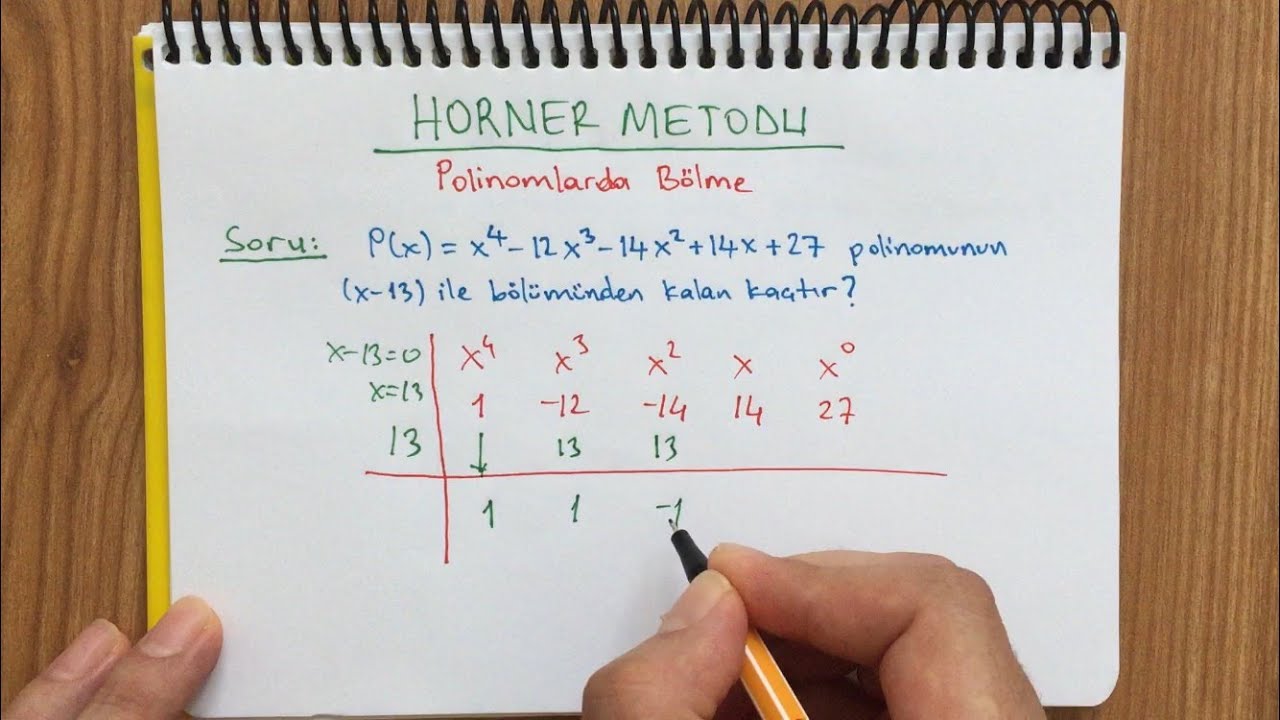 HORNER METODU
Polinomlarda Bölme
Soru: P(x) = x⁴ - 12x³ - 14x² + 14x + 27 polinomunun
(x-13) ile bölümünden kalan kaçtır?
x-13=0 x⁴ x³ x² x x⁰
x=13 1 -12 -14 14 27
13 ↓ 13 13
1 1 -1